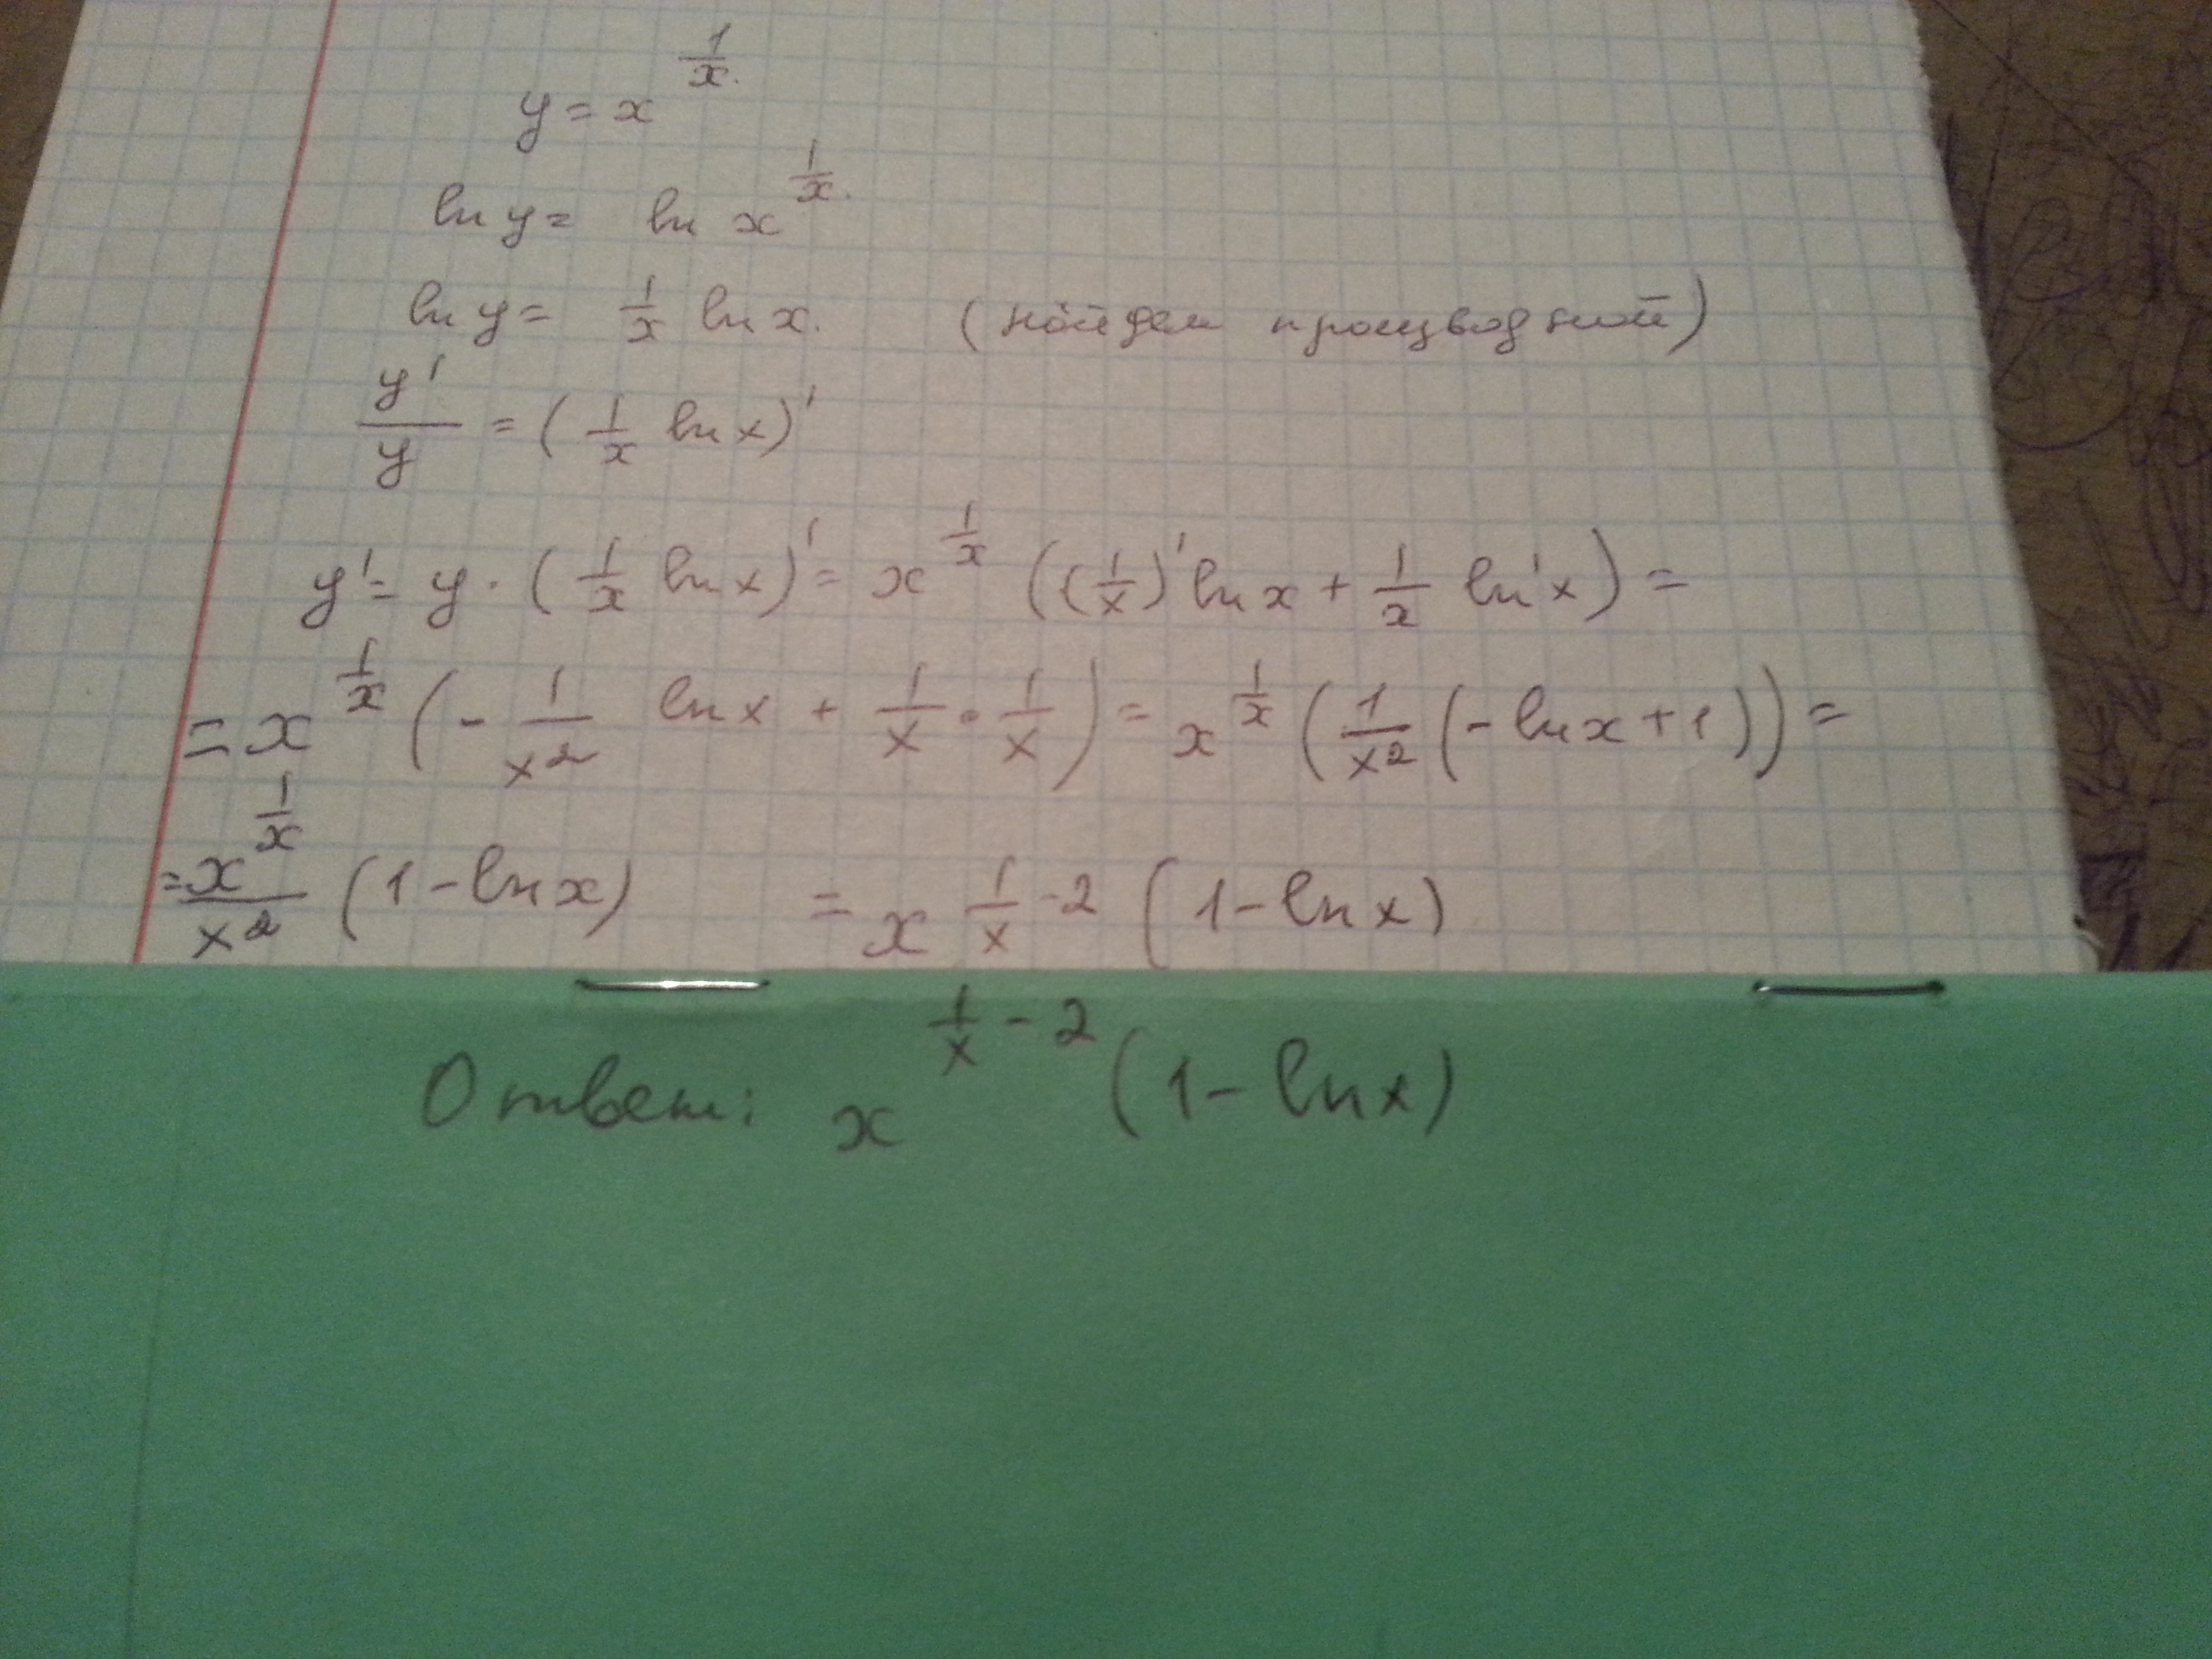 y = x^(1/x).
ln y = ln x^(1/x).
ln y = 1/x ln x. (найдем производной)
y'/y = (1/x ln x)'
y' = y · (1/x ln x)' = x^(1/x) ((1/x)' ln x + 1/x ln' x) =
= x^(1/x) (- 1/x² ln x + 1/x · 1/x) = x^(1/x) (1/x² (- ln x + 1)) =
= x^(1/x)/x² (1 - ln x) = x^(1/x - 2) (1 - ln x)
Ответ: x^(1/x - 2) (1 - ln x)